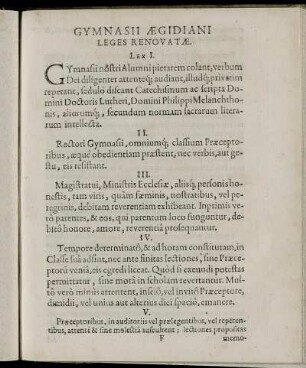 GYMNASII ÆGIDIANI
LEGES RENOVATÆ.
LEX I.
GYmnasii nostri Alumni pietatem colant, verbum
Dei diligenter attenteq; audiant, illudq; privatim
repetant, sedulo discant Catechismum ac scripta Do-
mini Doctoris Lutheri, Domini Philippi Melanchtho-
nis, aliorumq;, secundum normam sacrarum litera-
rum intellecta.
II.
Rectori Gymnasii, omniumq; classium Præcepto-
ribus, æquè obedientiam præstent, nec verbis, aut ge-
stu, eis resistant.
III.
Magistratui, Ministris Ecclesiæ, aliisq; personis ho-
nestis, tam viris, quàm fæminis, nostratibus, vel pe-
regrinis, debitam reverentiam exhibeant. Inprimis ve-
rò parentes, & eos, qui parentum loco funguntur, de-
bitò honore, amore, reverentiâ prosequantur.
IV.
Tempore determinatô, & ad horam constitutam, in
Classe suâ adsint, nec ante finitas lectiones, sine Præce-
ptorû veniâ, eis egredi liceat. Quòd si exeundi potestas
permittatur, sine morâ in scholam revertantur. Mul-
tò verò minùs attentent, insciô, vel invitô Præceptore,
dimidii, vel unius aut alterius diei spaciô, emanere.
V.
Præceptoribus, in auditoriis vel prælegentibus, vel repeten-
tibus, attentè & sine molestiâ auscultent; lectiones propositas
F memo-